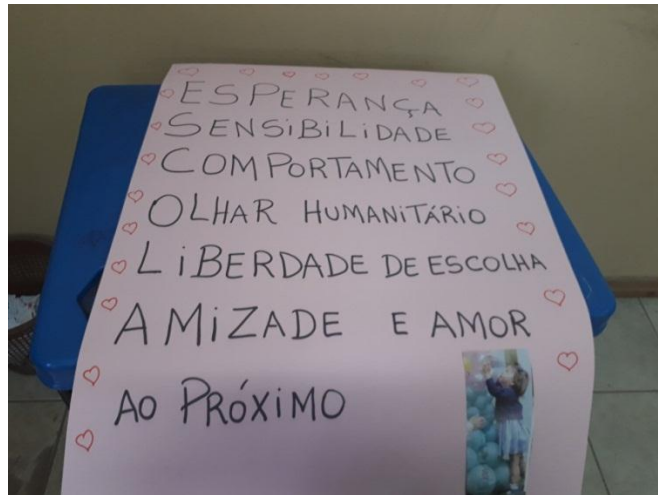 ESPERANÇA
SENSIBILIDADE
COMPORTAMENTO
OLHAR HUMANITÁRIO
LIBERDADE DE ESCOLHA
AMIZADE E AMOR
AO PRÓXIMO